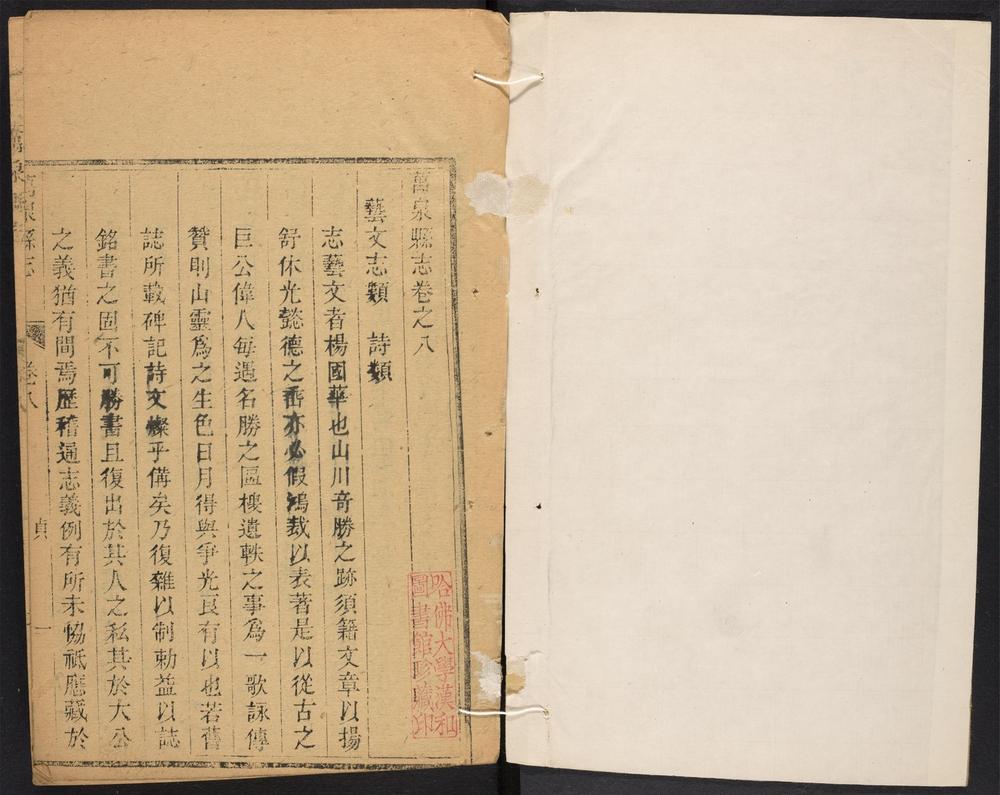 萬泉縣志卷之八
藝文志類　詩類
志藝文者楊國華也山川竒勝之跡須籍文章以揚
舒休光懿德之
亦必假鴻裁以表著是以從古之
巨公偉人每過名勝之區摟遺軼之事爲一歌詠傳
賛則山靈爲之生色日月得與爭光良有以也若舊
誌所載碑記詩文燦乎備矣乃復雜以制勅益以誌
銘書之固不可勝書且復出於其人之私其於大公
之義猶有間焉歷稽通志義例有所未恊祇應藏於
萬泉縣志
卷八
貞
一
哈佛大學漢和
圖書館珍藏印